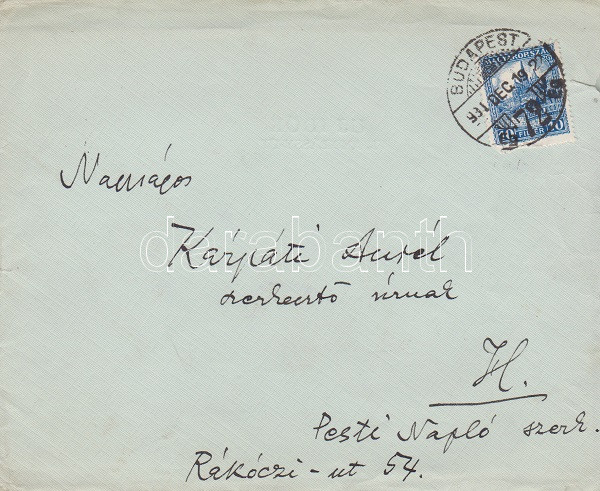 BUDAPEST
931 DEC. 19
MAGYARORSZÁG
20 FILLÉR 20
Nagyságos
Kárpáti Aurél
szerkesztő úrnak
H.
Pesti Napló szerk.
Rákóczi-ut 54.
darabanth